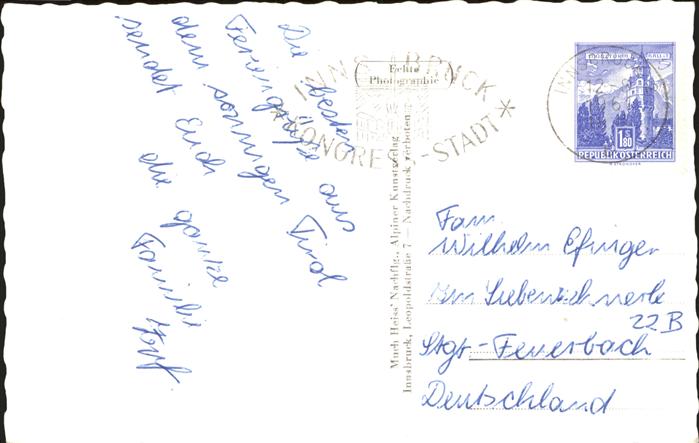 Die besten
Feriengrüße aus
dem sonnigen Tirol
sendet Euch
die ganze
Familie
INNSBRUCK
*KONGRESS-STADT*
Echte
Photographie
Much Heiss' Nachflg., Alpiner Kunstverlag
Innsbruck, Leopoldstraße 7 — Nachdruck verboten
1 S
1.80
REPUBLIK ÖSTERREICH
Fam.
Wilhelm Efinger
22 B
Stgt-Feuerbach
Deutschland